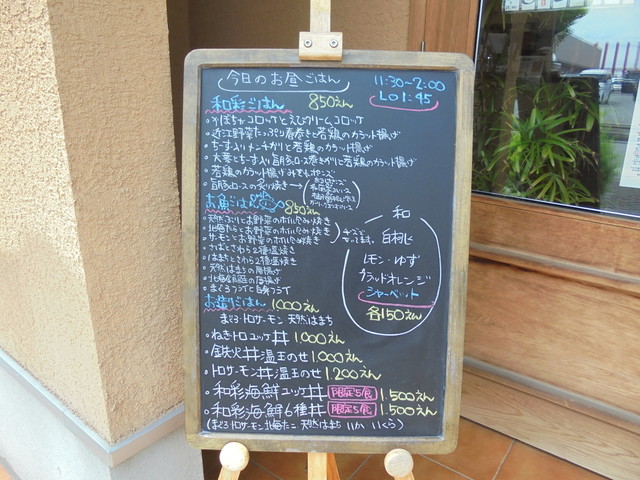 今日のお昼ごはん
11:30~2:00
LO 1:45
和彩ごはん 850えん
・かぼちゃコロッケとえびクリームコロッケ
・近江野菜たっぷり春巻きと若鶏のカラット揚げ
・チーズ入りメンチカツと若鶏のカラット揚げ
・大葉とチーズ入り豚ロース巻きかつと若鶏のカラット揚げ
・若鶏のカラット揚げみぞれポン酢
・豚ロースの炙り焼き
お魚ごはん 850えん
・天然ぶりとお野菜のホイル包み焼き
・北海たらとお野菜のホイル包み焼き
・サーモンとお野菜のホイル包み焼き
・さばとさわら2種塩焼き
・はまちとさわら2種塩焼き
・天然はまちの唐揚げ
・まぐろフライと白身フライ
お造りごはん 1000えん
まぐろ・トロサーモン 天然はまち
・ねぎトロユッケ丼 1,000えん
・鉄火丼温玉のせ 1,000えん
・トロサーモン丼温玉のせ 1,200えん
・和彩海鮮ユッケ丼 限定5食 1,500えん
・和彩海鮮6種丼 限定5食 1,500えん
(まぐろ トロサーモン 北海たこ 天然はまち いか いくら)
和
白桃
レモン・ゆず
ブラッドオレンジ
シャーベット
各150えん